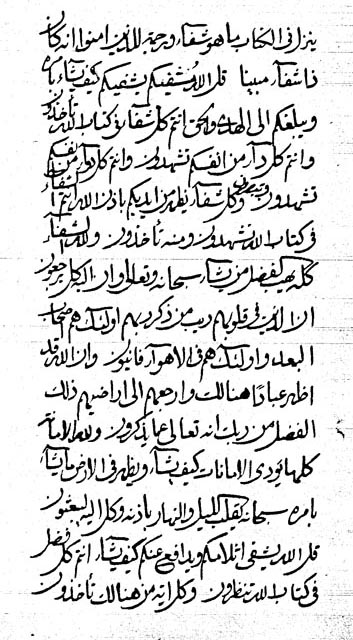 ينزل في الكتاب ما هو شفاء ورحمة للذين امنوا انه كان
ذا شفاء مبينا قل الله يشفينكم يشفيكم كيف يشاء بامره
ويبلغكم الى الهدى والحق انتم كل شفاء في كتاب الله تأخذون
وانتم كل داء من انفسكم تشهدون وانتم كل دواء من
تشهدون وكل شفاء يظهر من ايديكم باذن الله انتم
في كتاب الله تشهدون ومنه تأخذون ولله الشفاء
كله يهب كيف من يشاء سبحانه وتعالى وان اليه كل يرجعون
ان الذين في قلوبهم ريب من ذكر ربهم اولئك هم اصحاب
البعد واولئك هم في الاهواء فانيون وان الله قد
اظهر عبادا هنالك وارجعهم الى اراضيهم ذلك
الفضل من ربك انه تعالى عما يذكرون ولله الامانات
كلها يؤدي الامانات كيف يشاء ويظهر في الارض ما يشاء
بامره سبحانه يقلب الليل والنهار باذنه وكل اليه يبعثون
قل الله يشفي اثلامكم ويدافع عنكم كيف يشاء انتم كل فضل
في كتاب الله تنظرون وكل اية من هنالك تأخذون